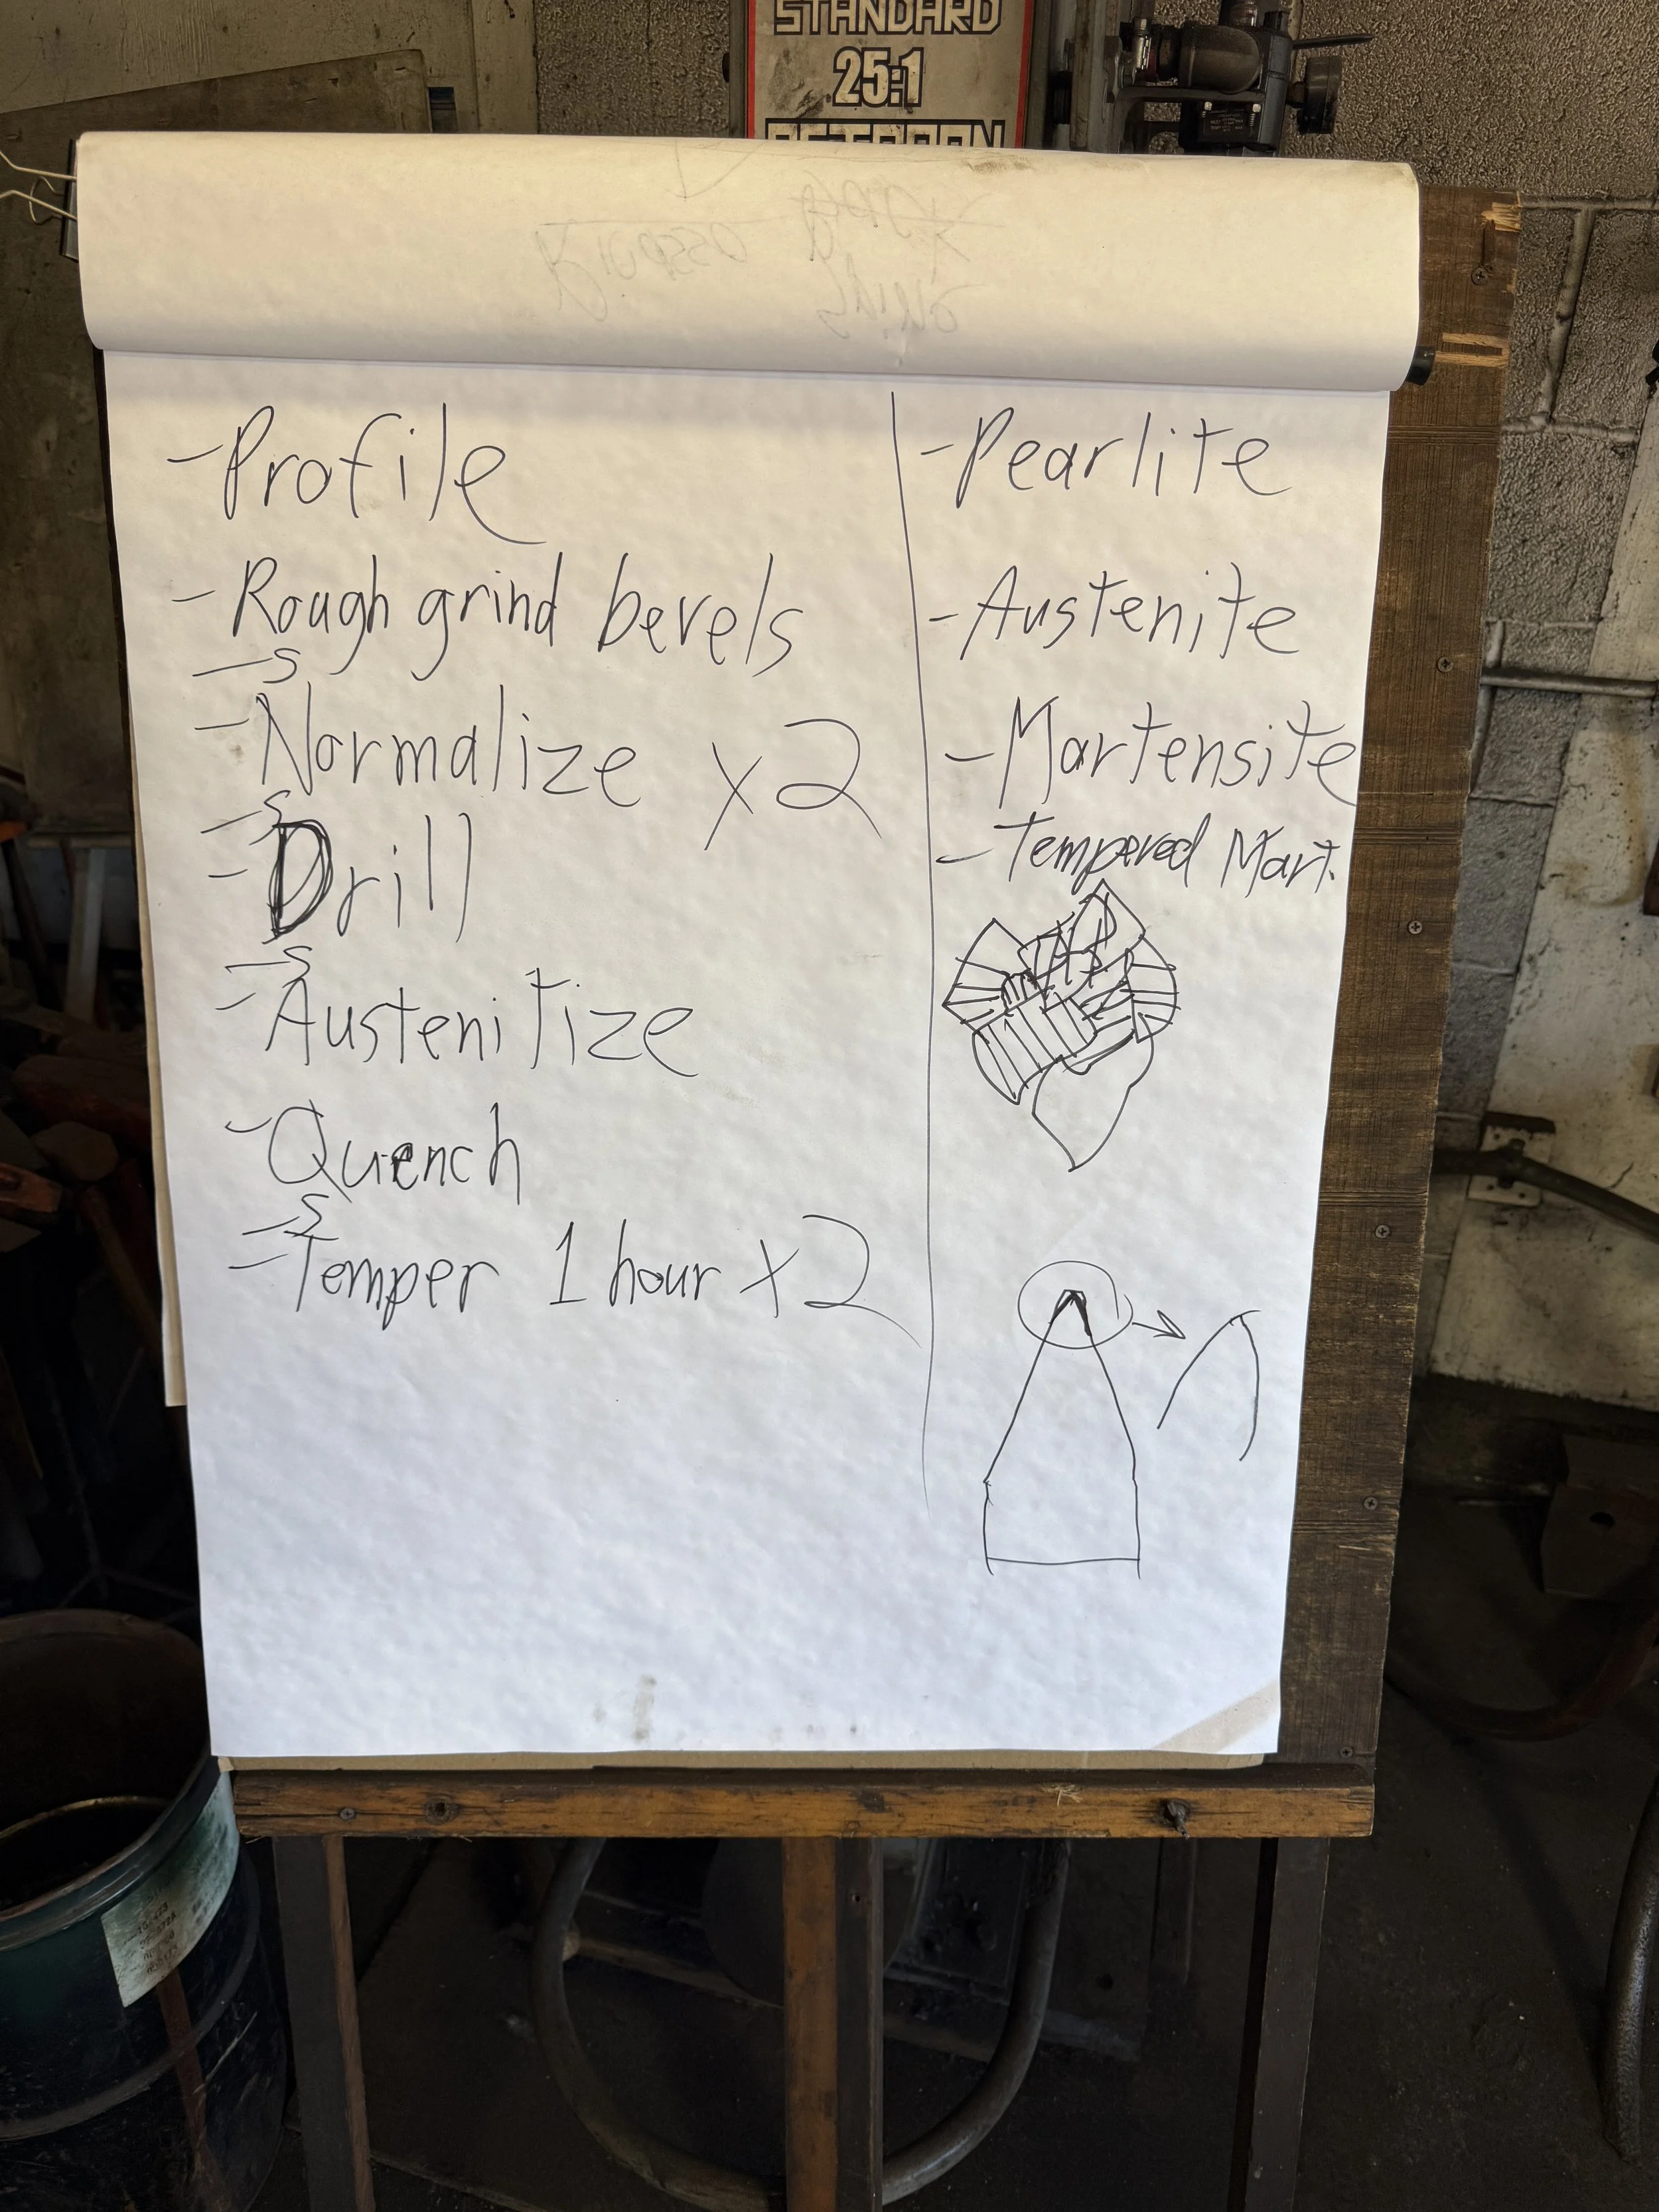 STANDARD
25:1
- Profile
- Rough grind bevels
- S
- Normalize x2
- S
- Drill
- S
- Austenitize
- Quench
- S
- Temper 1 hour x2
- Pearlite
- Austenite
- Martensite
- Tempered Mart.